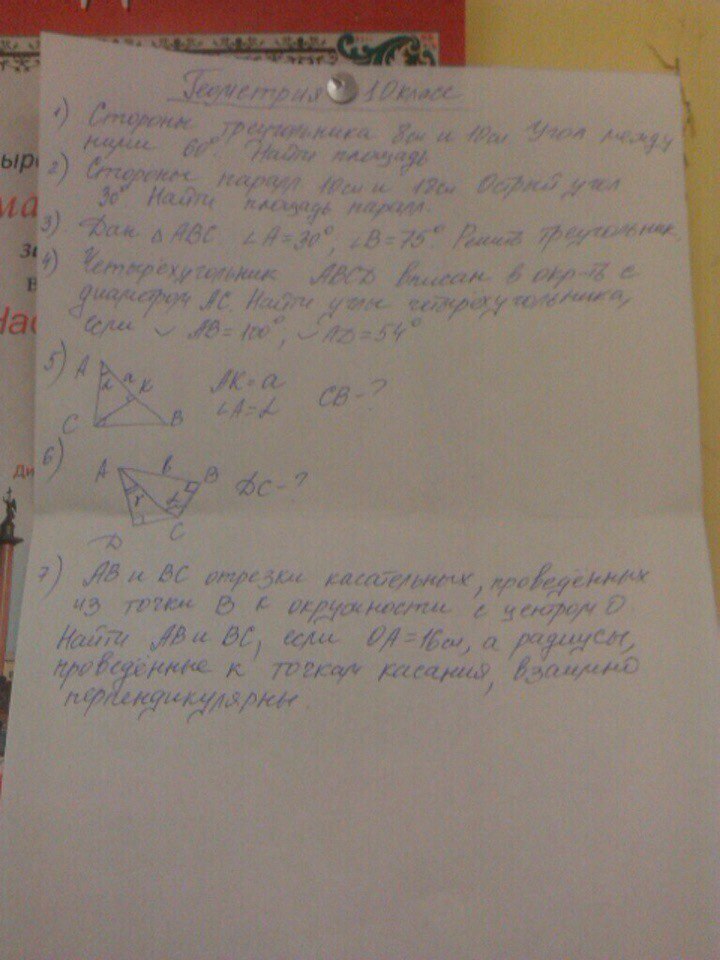 Геометрия 10 класс
1) Стороны треугольника 8см и 10см Угол между
ними 60°. Найти площадь
2) Стороны паралл 10см и 12см Острый угол
30° Найти площадь паралл.
3) Дан △ABC ∠A=30°, ∠B=75°. Решить треугольник.
4) Четырехугольник ABCD вписан в окр-ть с
диаметром AC. Найти углы четырехугольника,
если ◡ AB=100°, ◡ AD=54°
5) A α a K C B AK=a
∠A=α CB-?
6) A в B C D DC-?
7) AB и BC отрезки касательных, проведенных
из точки B к окружности с центром O
Найти AB и BC, если OA=16см, а радиусы,
проведенные к точкам касания, взаимно
перпендикулярны.
ыр
ма
в
Нас
Ди